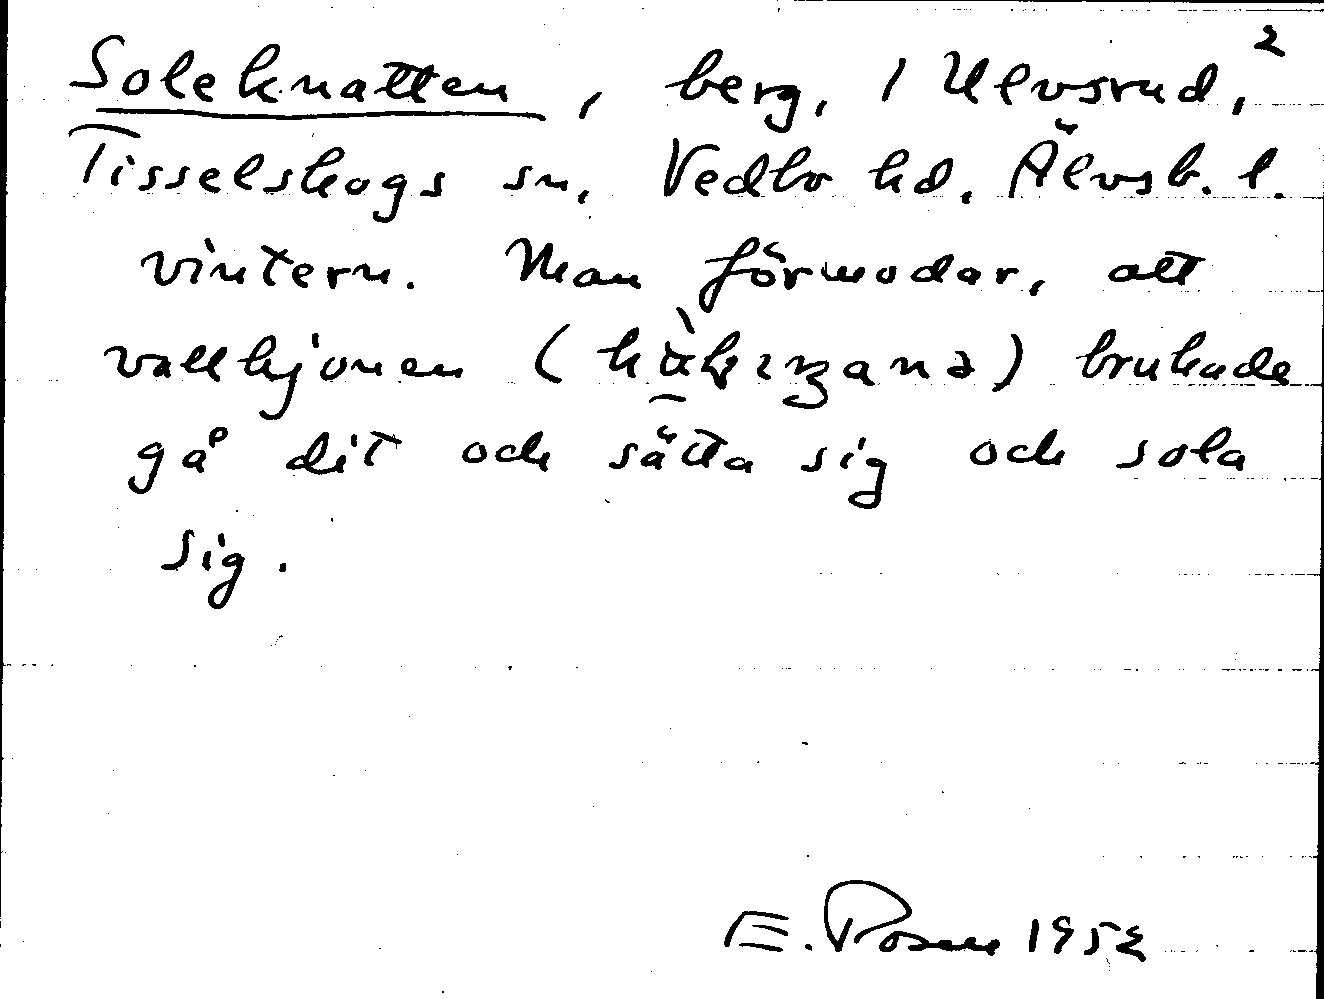 2
Soleknatten, berg, / Ulvsrud,
Tisselskogs sn, Vedbo hd. Älvsb. l.
vintern. Man förmodar, att
vallhjonen ( ) brukade
gå dit och sätta sig och sola
sig.
E. Rosen 1952